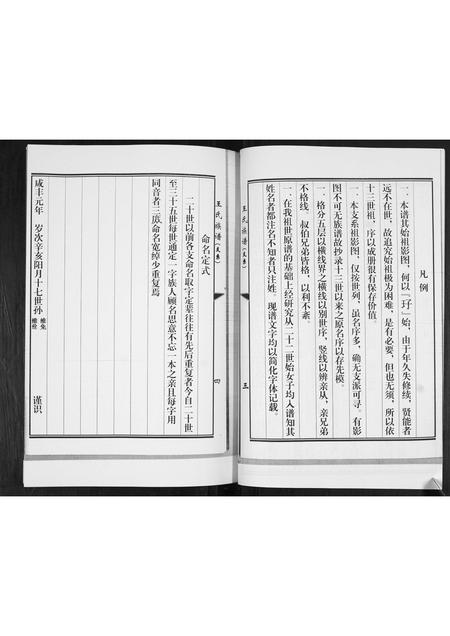 凡例
一．本谱其始祖影图，何以『玗』始，由于年久失修续，贤能者
远不在世，故追究始祖极为困难，是有必要，但也无须，所以依
十三世祖，序以成册很有保存价值。
一．本支系祖影图，仅按世列，虽名序多，确无支派可寻。有影
图不可无族谱故抄录十三世以来之原名序以存先模。
一．格分五层以横线界之横线以别世序，竖线以辨亲从，亲兄弟
不格线，叔伯兄弟皆格，以利不紊。
一．在我祖世原谱的基础上经研究从二十二世始女子均入谱知其
姓名者都注名不知者只注姓。现谱文字均以简化字体记载。
王氏族谱
三
王氏族谱
四
命名定式
二十世以前各支命名取字定辈往往有先后重复者今自二十世
至三十五世每世通定一字族人顾名思意不忘一本之亲且每字用
同音者三点命名宽绰少重复焉
咸丰元年 岁次辛亥阳月十七世孙 谨识